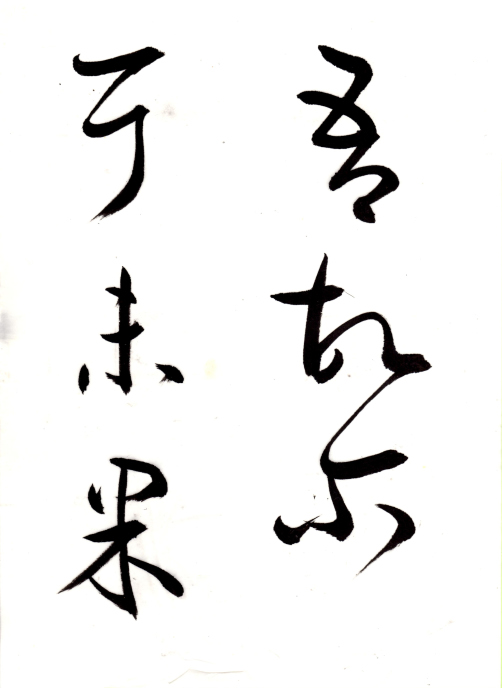 吾故亦
于未果